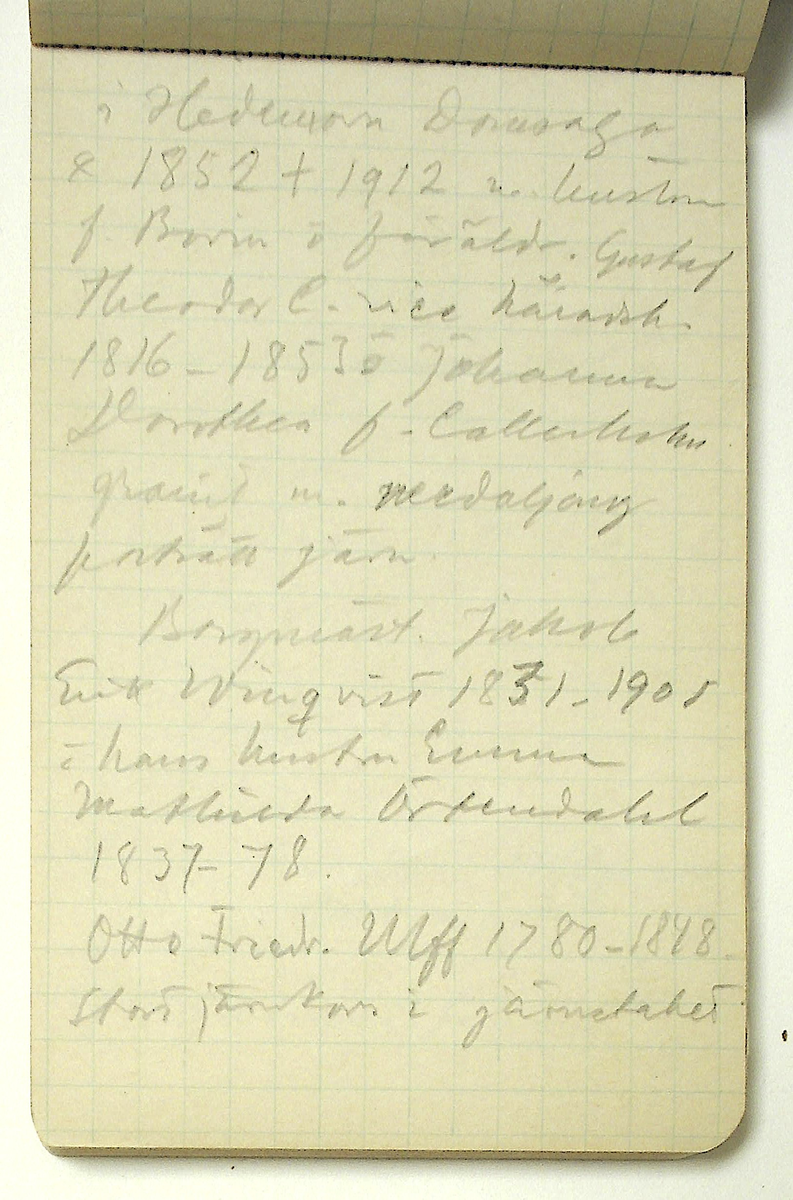 i Hedemora Domsaga
* 1852 + 1912 m. hustru
f. Borin o föräldr. Gustaf
Theodor C. vice häradsh.
1816 – 1853 o Johanna
Dorothea f. Callerholm
granit m. medaljong
porträtt järn.
Borgmäst. Jakob
Erik Winqvist 1831 – 1905
o hans hustru Emma
Mathilda Örtendahl
1837 – 78.
Otto Friedr. Ulff 1780 – 1848.
Stort järnkors i järnstaket